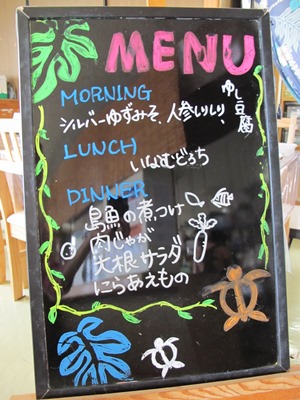 MENU
MORNING
ゆし豆腐
シルバーゆずみそ、人参しりしり、
LUNCH
いなむどろち
DINNER
島魚の煮つけ
肉じゃが
大根サラダ
にらあえもの